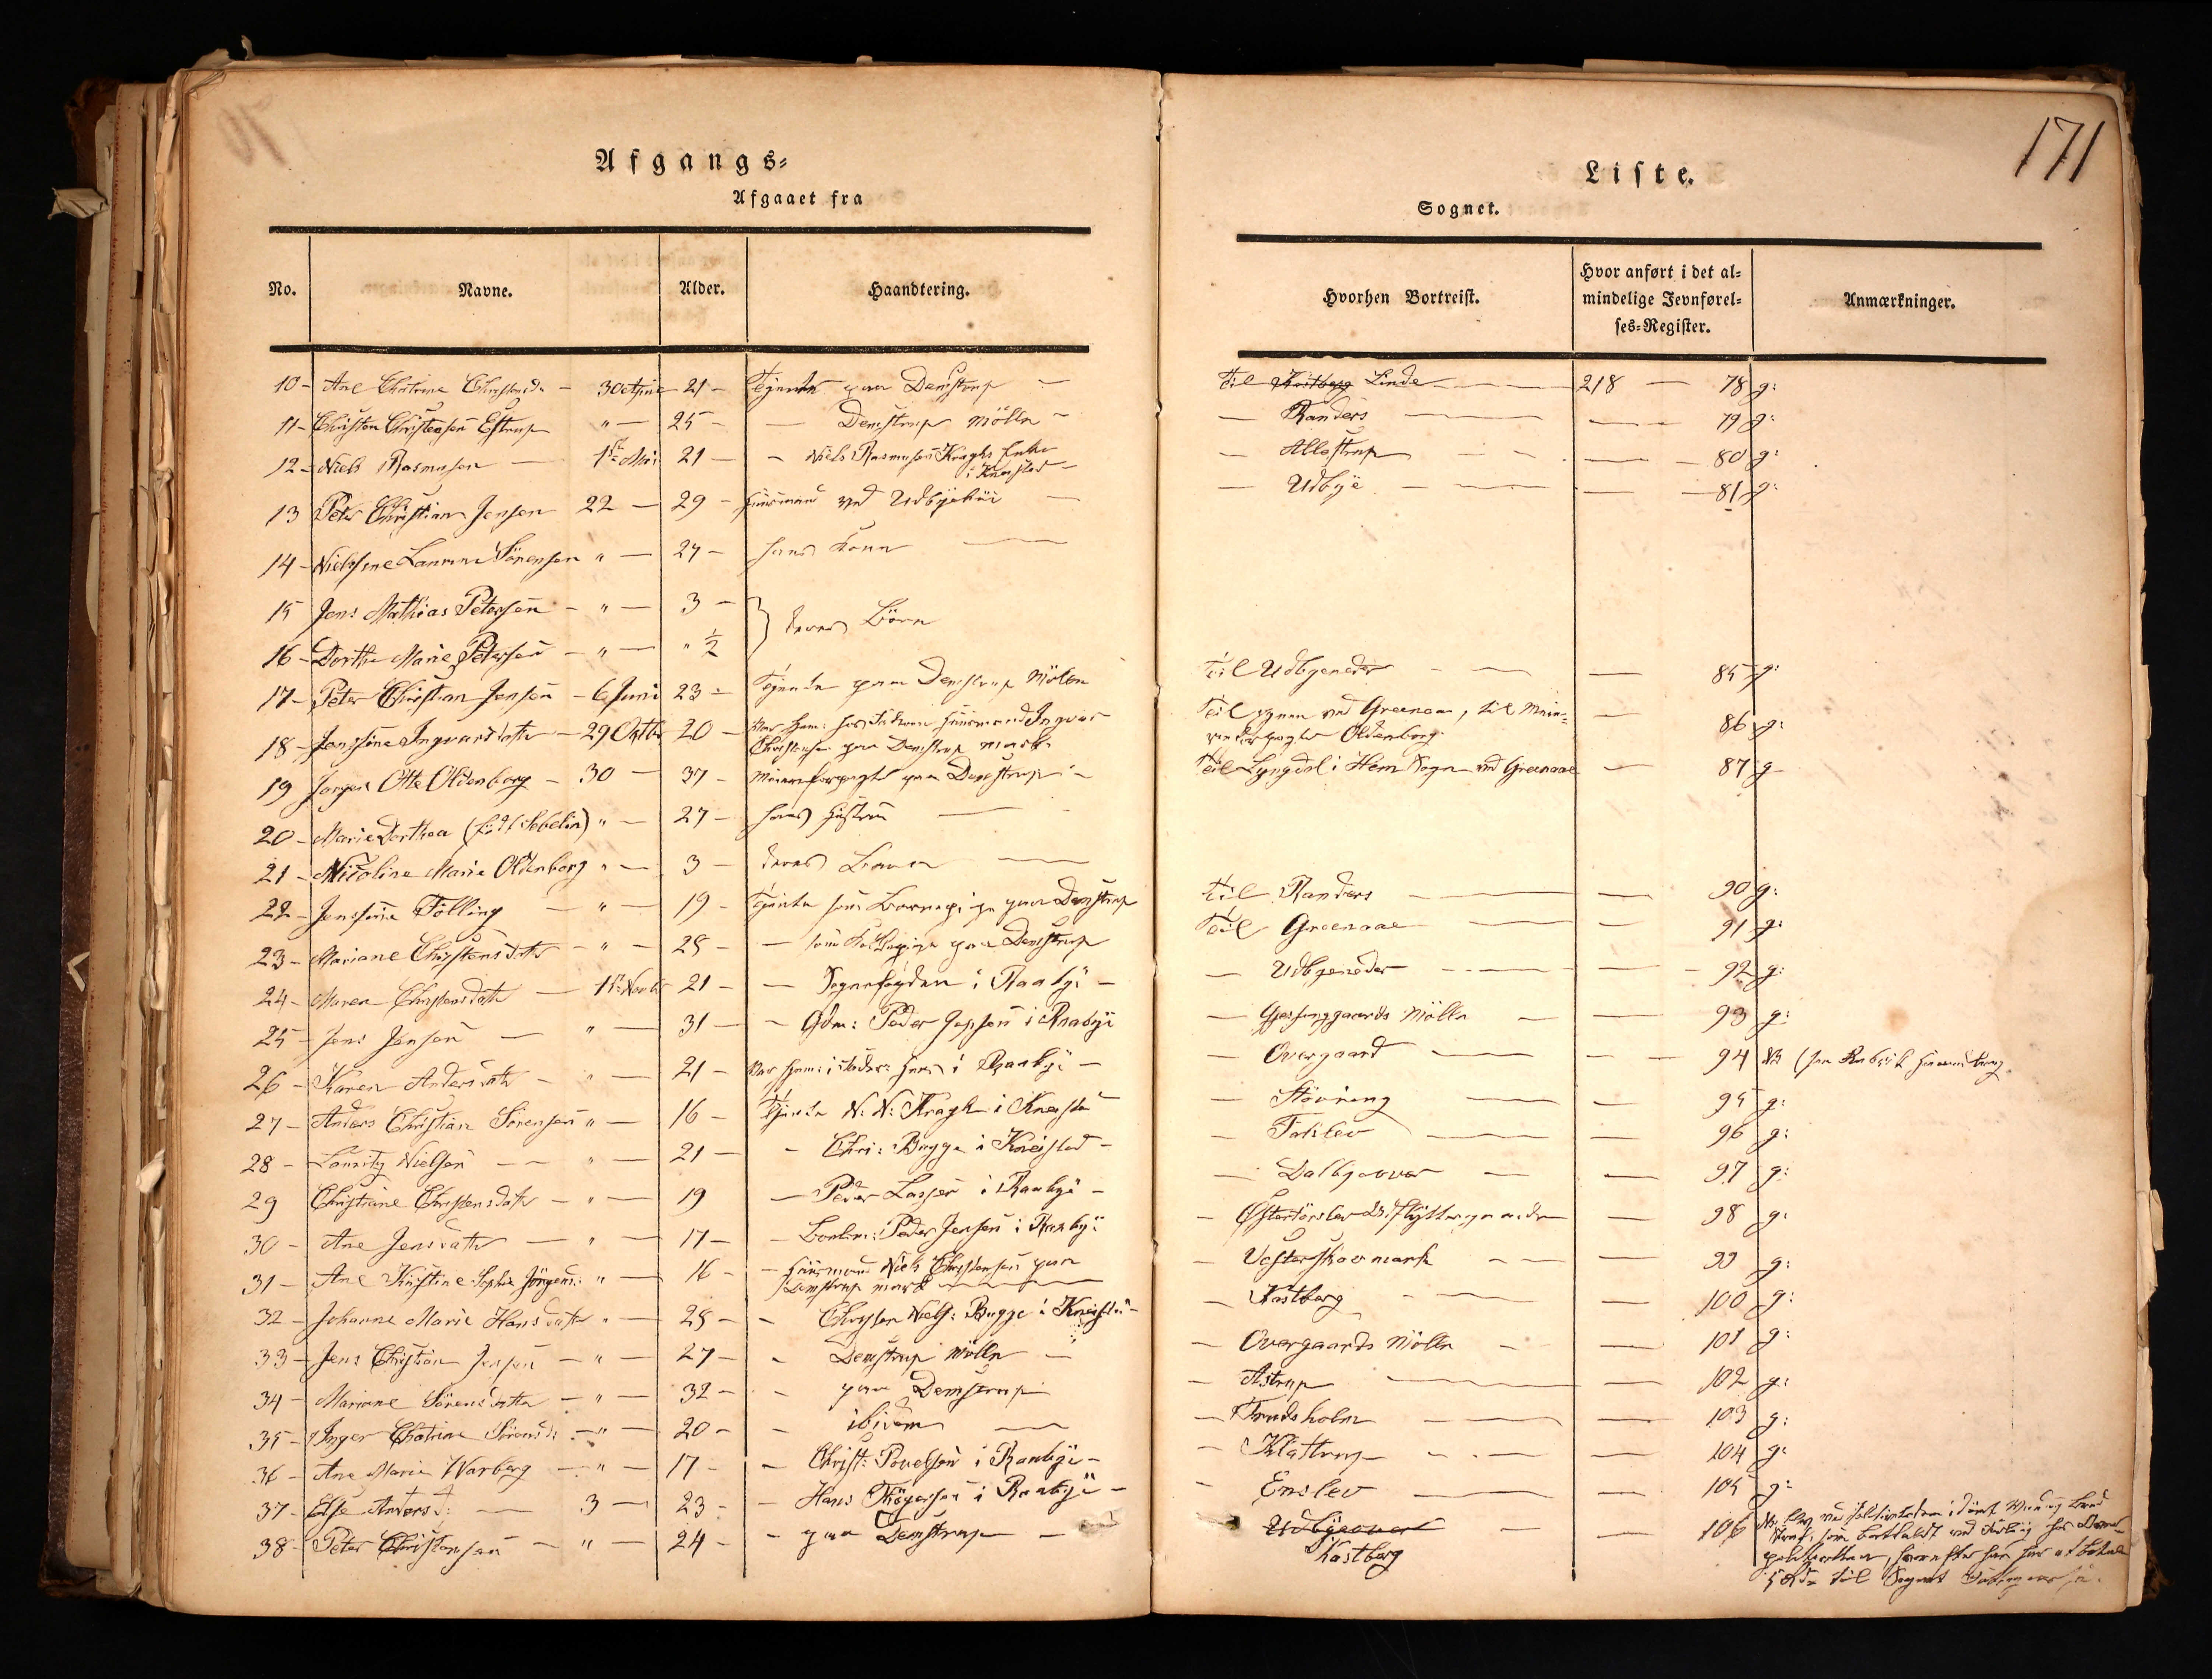 171
Afgangs=
Liste.
Afgaaet fra
Sognet.
No. Navne. Alder. Haandtering.
Hvorhen Bortreist. Hvor anført i det al=
mindelige Jevnførel=
ses=Register. Anmærkninger.
10 - Ane Chatrine 21 - paa Demstrup - Til Kastberg Linde 218 - 78 g:
11 - Christen Christensen Estrup " - 25 - Demstrup Mølle - Randers 79 g:
12 - Niels Rasmusen - 1ste Mai 21 - Niels Rasmusen Kraghs Enke - Allestrup 80 g:
13 Peter Christian Jensen 22 - 29 - Huusmand ved Udbyehøi - Udbye 81 g:
14 - Nielsine Sørensen " - 27 - hans Kone
15 Jens Mathias Petersen - " - 3 - } deres Børn
16 - Dorthe Marie Petersen - " - " ½
17 - Peter Christian Jensen - 6 Juni 23 - Tjente paa Demstrup Mølle Til Udbyeneder 85 g:
18 - Jensine Ingvardsdatter - 29 Octbr 20 - Huusmand Ingvar Til ved Greenaa, til Meie=
Christensen paa Demstrup Mark. Oldenborg. 86 g:
19 Jørgen Otto Oldenborg - 30 - 37 - Meieriforpagter paa Demstrup - Til Lyngdal i Hem Sogn ved Greenaae 87 g
20 - Marie Dorthea (født Sebelin) " - 27 - hans Hustru
21 - Nicoline Marie Oldenborg " - 3 - deres Barn
22 - Jensine Tølling - " - 19 - Tjente som Barnepige paa Demstrup til Randers 90 g:
23 - Mariane Christensdatter - " - 28 - som paa Demstrup Til Greenaae 91 g:
24 - Maren Christensdatter - 1ste Novbr 21 - Sognefogden i Raabye - Udbyeneder 92 g:
25 - Jens Jensen - " - 31 - Gdm: Peder Jepsen i Raabye - Gjessinggaards Mølle 93 g:
26 - Karen Andersdatter - " - 21 - Var hjem: i Raabye - Overgaard 94
27 - Anders Christian Sørensen " - 16 - Tjente N: N: Kragh i Kneistad - Støvring 95 g:
28 - Lauritz Nielsen - " - 21 - Chri: Bugge i Kneistad - Falslev 96 g:
29 Christiane Christensdatter - " - 19 - Peder Lassen i Raabye - Dalbyeover 97 g:
30 - Ane Jensdatter - " - 17 - Peder Jensen i Raabye - Østertørslev 98 g:
31 - Ane Kirstine Sophie Jørgensd: " - 16 - Huusmand Niels Christensen paa
Demstrup Mark - Vesterskovmark 99 g:
32 - Johanne Marie Hansdatter " - 28 - Christen Niels: Bugge i Kneistad - Kastberg 100 g:
33 - Jens Christian Jensen - " - 27 - Demstrup Mølle - Overgaards Mølle 101 g:
34 - Mariane Sørensdatter - " - 32 - paa Demstrup - Astrup 102 g:
35 - Inger Chatrine Sørensd: - " - 20 - ibidem - Trudsholm 103 g:
36 - Ane Marie Warberg - " - 17 - Christ: Pouelsen i Raabye - Klattrup 104 g:
37 - Else Andersd: - 3 - 23 - Hans i Raabye - Enslev 105 g:
38 - Peter Christensen - " - 24 - paa Demstrup - Udbyeover 106
Kastberg